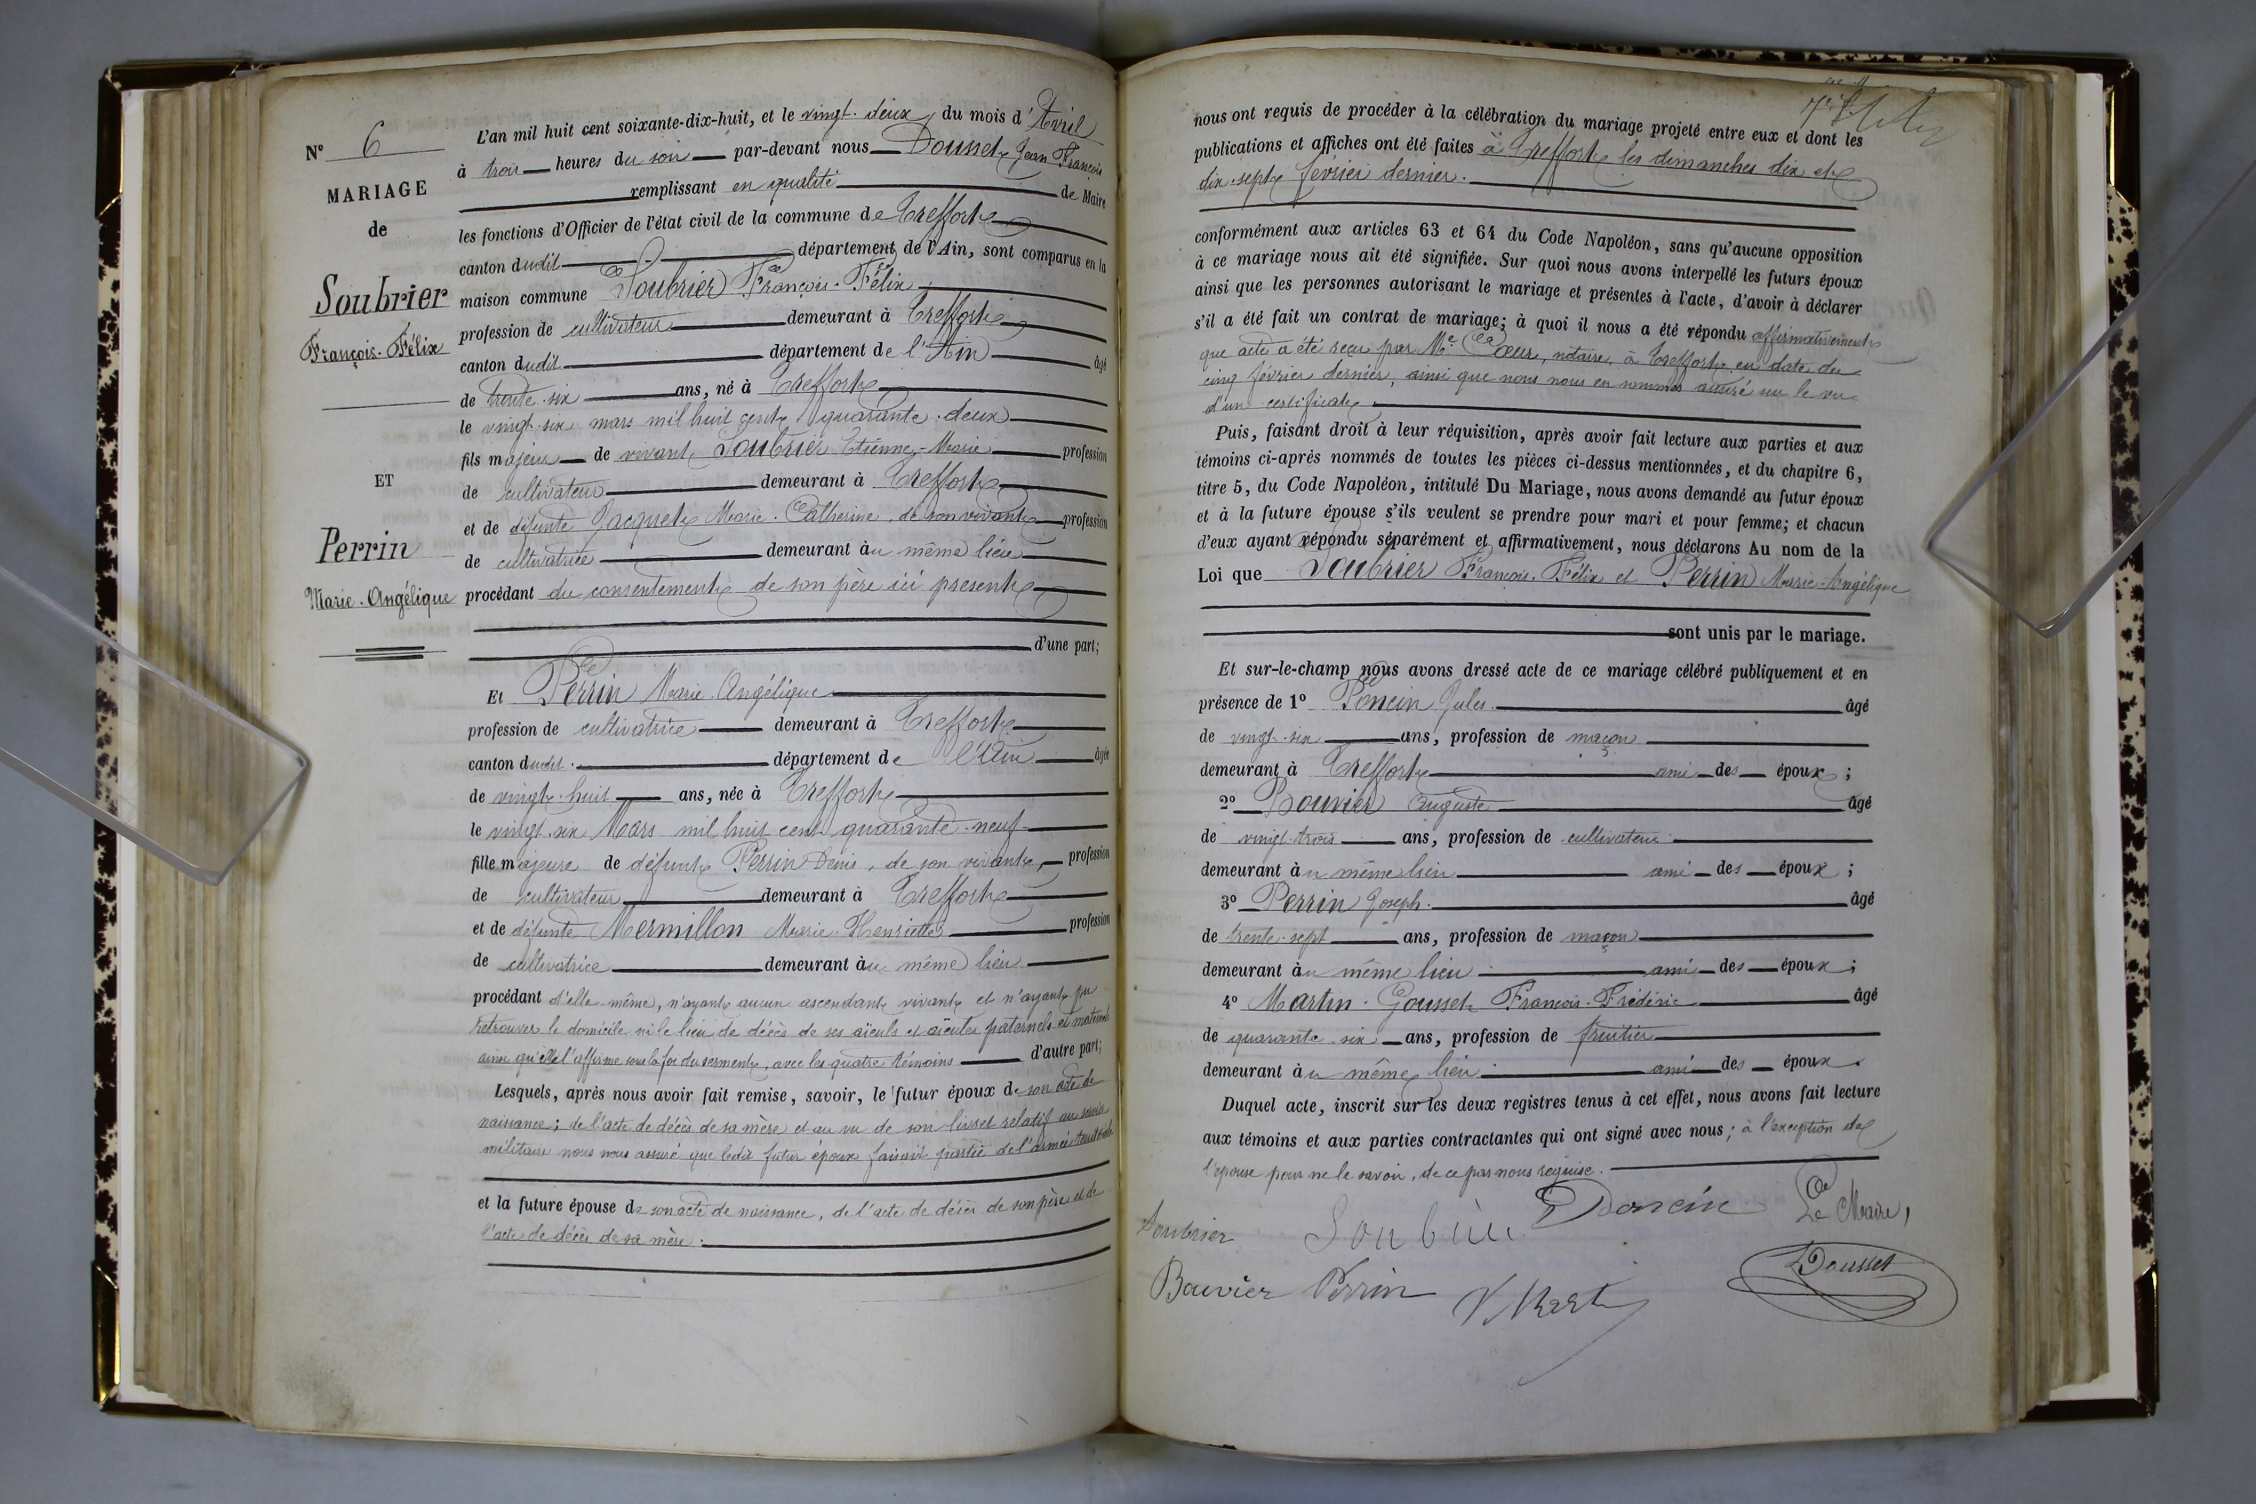 N° 6
MARIAGE
de
Soubrier
François-Félix
ET
Perrin
Marie-Angélique
L'an mil huit cent soixante-dix-huit, et le vingt-deux du mois d'Avril
à trois heures du soir par-devant nous Dousset Jean François
remplissant en qualité de Maire
les fonctions d'Officier de l'état civil de la commune de Treffort
canton dudit département de l'Ain, sont comparus en la
maison commune Soubrier François-Félix
profession de cultivateur demeurant à Treffort
canton dudit département de l'Ain âgé
de trente-six ans, né à Treffort
le vingt-six mars mil huit cent quarante-deux
fils majeur de vivant Soubrier Etienne-Marie profession
de cultivateur demeurant à Treffort
et de défunte Jacquet Marie-Catherine, de son vivant profession
de cultivatrice demeurant au même lieu
procédant du consentement de son père ici présent
d'une part;
Et Perrin Marie-Angélique
profession de cultivatrice demeurant à Treffort
canton dudit. département de l'Ain âgée
de vingt-huit ans, née à Treffort
le vingt-six Mars mil huit cent quarante-neuf
fille majeure de défunt Perrin Denis, de son vivant, profession
de cultivateur demeurant à Treffort
et de défunte Mermillon Marie-Henriette profession
de cultivatrice demeurant au même lieu
procédant d'elle-même, n'ayant aucun ascendant vivant et n'ayant pu
retrouver le domicile ni le lieu de décès de ses aïeuls et aïeules paternels et maternels
ainsi qu'elle l'affirme sous la foi du serment, avec les quatre témoins d'autre part;
Lesquels, après nous avoir fait remise, savoir, le futur époux de son acte de
naissance; de l'acte de décès de sa mère et au vu de son livret relatif au service
militaire nous nous assuré que ledit futur époux faisait partie de l'armée territoriale
et la future épouse de son acte de naissance, de l'acte de décès de son père et de
l'acte de décès de sa mère.
nous ont requis de procéder à la célébration du mariage projeté entre eux et dont les
publications et affiches ont été faites à Treffort les dimanches dix et
dix-sept février dernier.
conformément aux articles 63 et 64 du Code Napoléon, sans qu'aucune opposition
à ce mariage nous ait été signifiée. Sur quoi nous avons interpellé les futurs époux
ainsi que les personnes autorisant le mariage et présentes à l'acte, d'avoir à déclarer
s'il a été fait un contrat de mariage; à quoi il nous a été répondu affirmativement
que acte a été reçu par Me Cœur, notaire, à Treffort en date du
cinq février dernier, ainsi que nous nous en sommes assuré sur le vu
d'un certificat.
Puis, faisant droit à leur réquisition, après avoir fait lecture aux parties et aux
témoins ci-après nommés de toutes les pièces ci-dessus mentionnées, et du chapitre 6,
titre 5, du Code Napoléon, intitulé Du Mariage, nous avons demandé au futur époux
et à la future épouse s'ils veulent se prendre pour mari et pour femme; et chacun
d'eux ayant répondu séparément et affirmativement, nous déclarons Au nom de la
Loi que Soubrier François-Félix et Perrin Marie-Angélique
sont unis par le mariage.
Et sur-le-champ nous avons dressé acte de ce mariage célébré publiquement et en
présence de 1° Poncin Jules. âgé
de vingt-six ans, profession de maçon
demeurant à Treffort ami des époux;
2° Bouvier Auguste âgé
de vingt-trois ans, profession de cultivateur
demeurant au même lieu ami des époux;
3° Perrin Joseph. âgé
de trente-sept ans, profession de maçon
demeurant au même lieu ami des époux;
4° Martin-Gousset François-Frédéric âgé
de quarante-six ans, profession de fruitier
demeurant au même lieu ami des époux.
Duquel acte, inscrit sur les deux registres tenus à cet effet, nous avons fait lecture
aux témoins et aux parties contractantes qui ont signé avec nous; à l'exception de
l'épouse pour ne le savoir, de ce par nous requise.
Soubrier Soubrier Poncin Le Maire,
Bouvier Perrin Dousset